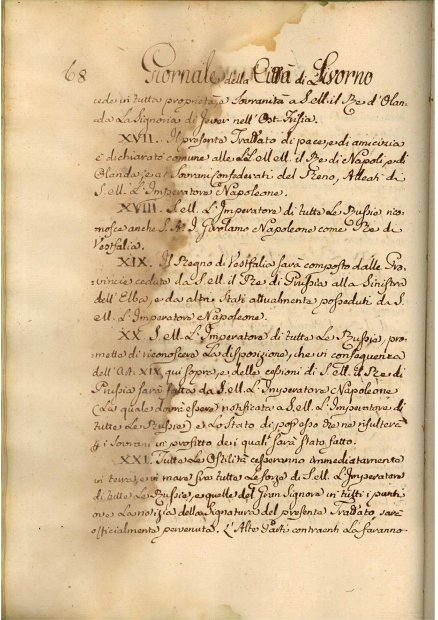 68 Giornale della Città di Livorno
cede in tutta proprietà, e Sovranità a S. M. il Re d'Olan=
da La Signoria di Jever nell'Ost-Frisia.
XVII. Il presente Trattato di pace, e di amicizia
è dichiarato comune alle LL. MM. il Re di Napoli, e di
Olanda, e ai Sovrani Confederati del Reno, Alleati di
S. M. L'Imperatore Napoleone.
XVIII. S. M. L'Imperatore di tutte le Russie rico=
nosce anche S. A. I. Girolamo Napoleone come Re di
Vestfalia.
XIX. Il Regno di Vestfalia sarà composto dalle Pro=
vincie cedute da S. M. il Re di Prussia alla Sinistra
dell'Elba, e da altri Stati attualmente posseduti da S.
M. L'Imperatore Napoleone.
XX. S. M. L'Imperatore di tutte Le Russie, pro=
mette di riconoscere La disposizione, che in conseguenza
dell'Art. XIX qui sopra, e delle cessioni di S. M. il Re di
Prussia sarà fatta da S. M. L'Imperatore Napoleone
(La quale dovrà essere notificata a S. M. L'Imperatore di
tutte Le Russie) e Lo Stato di possesso che ne risulterà
i Sovrani in profitto dei quali sarà stato fatto.
XXI. Tutte Le Ostilità cesseranno immediatamente
in terra, e in mare fra tutte Le forze di S. M. L'Imperatore
di tutte Le Russie, e quelle del Gran Signore in tutti i punti
ove La notizia della Signatura del presente Trattato sarà
officialmente pervenuta. L'Alte Parti contraenti La faranno